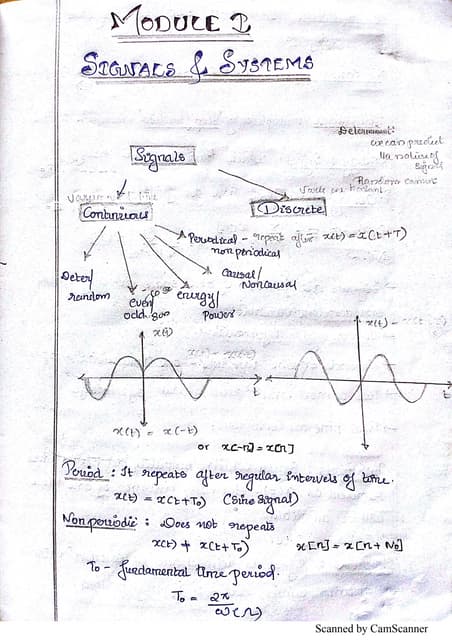 MODULE 1
SIGNALS & SYSTEMS
Determinant:
we can predict
the nature of
signals
Signals
Random cannot
Continuous
Discrete
Periodical - repeat after x(t) = x(t+T)
non periodical
Causal/
Noncausal
Deter/
random
even/
odd
energy/
Power
x(t)
x(t) -
t
t
x(t) = x(-t)
or x[-n] = x[n]
Period : It repeats after regular intervals of time.
x(t) = x(t+T₀) (Sine Signal)
Non periodic : Does not repeats
x(t) ≠ x(t+T₀) x[n] = x[n+N₀]
T₀ - fundamental time period.
T₀ = 2π
Scanned by CamScanner